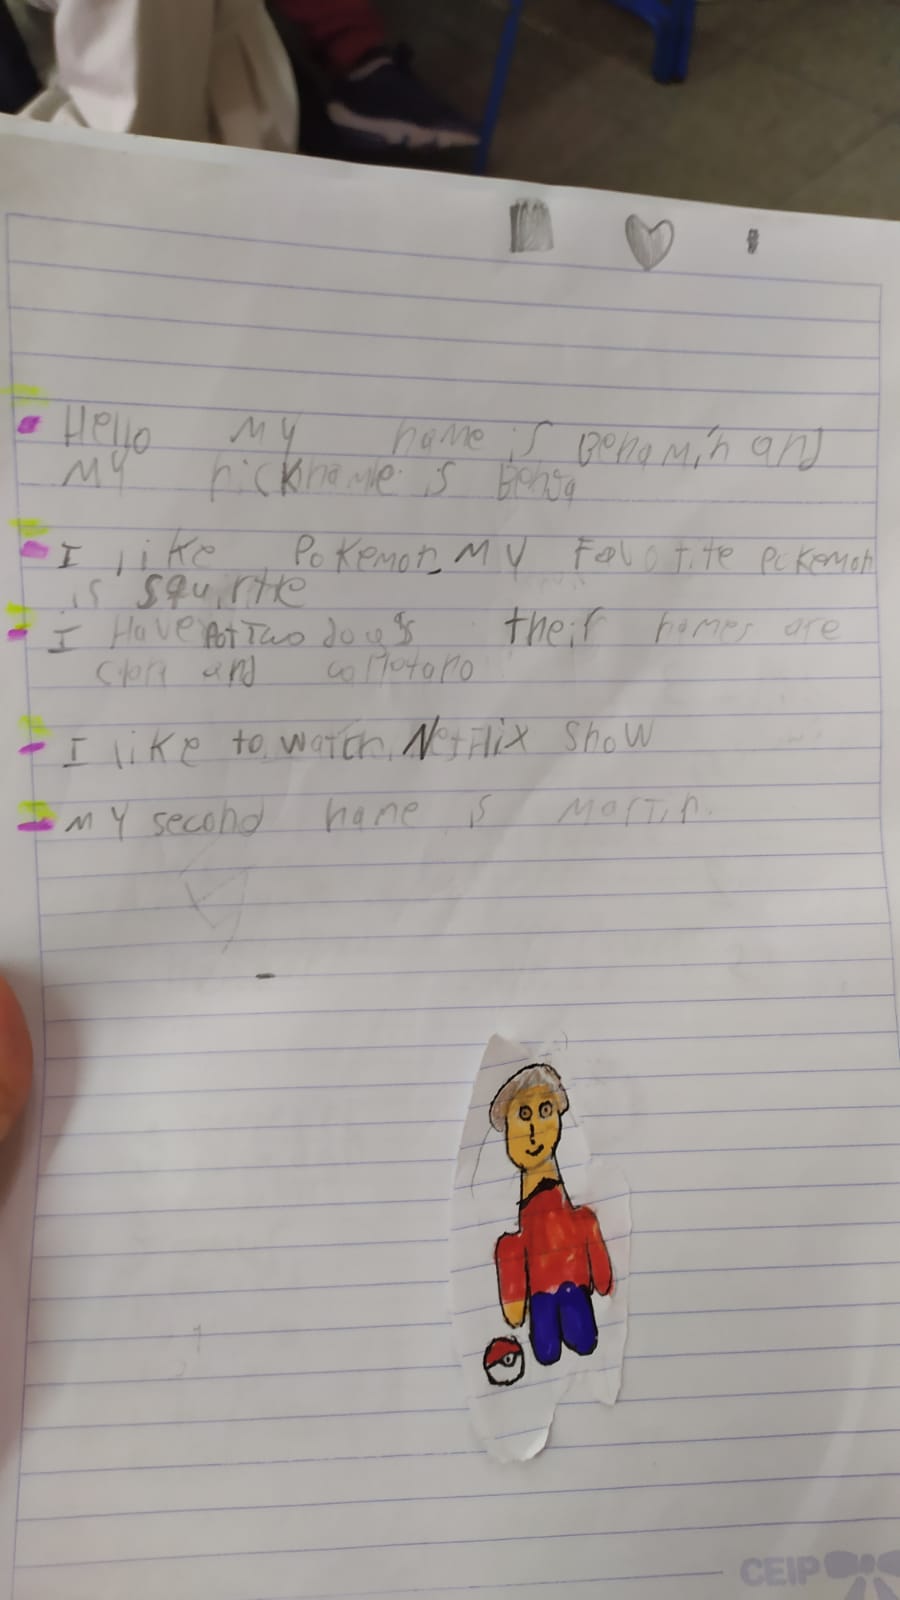 Hello my name is Benamin and
My nickname is Benja
I like Pokemon my Favotite pokemon
is squirtle
I Have Two dogs their names are
and
I like to watch Netflix show
My second name is Martin.
CEIP